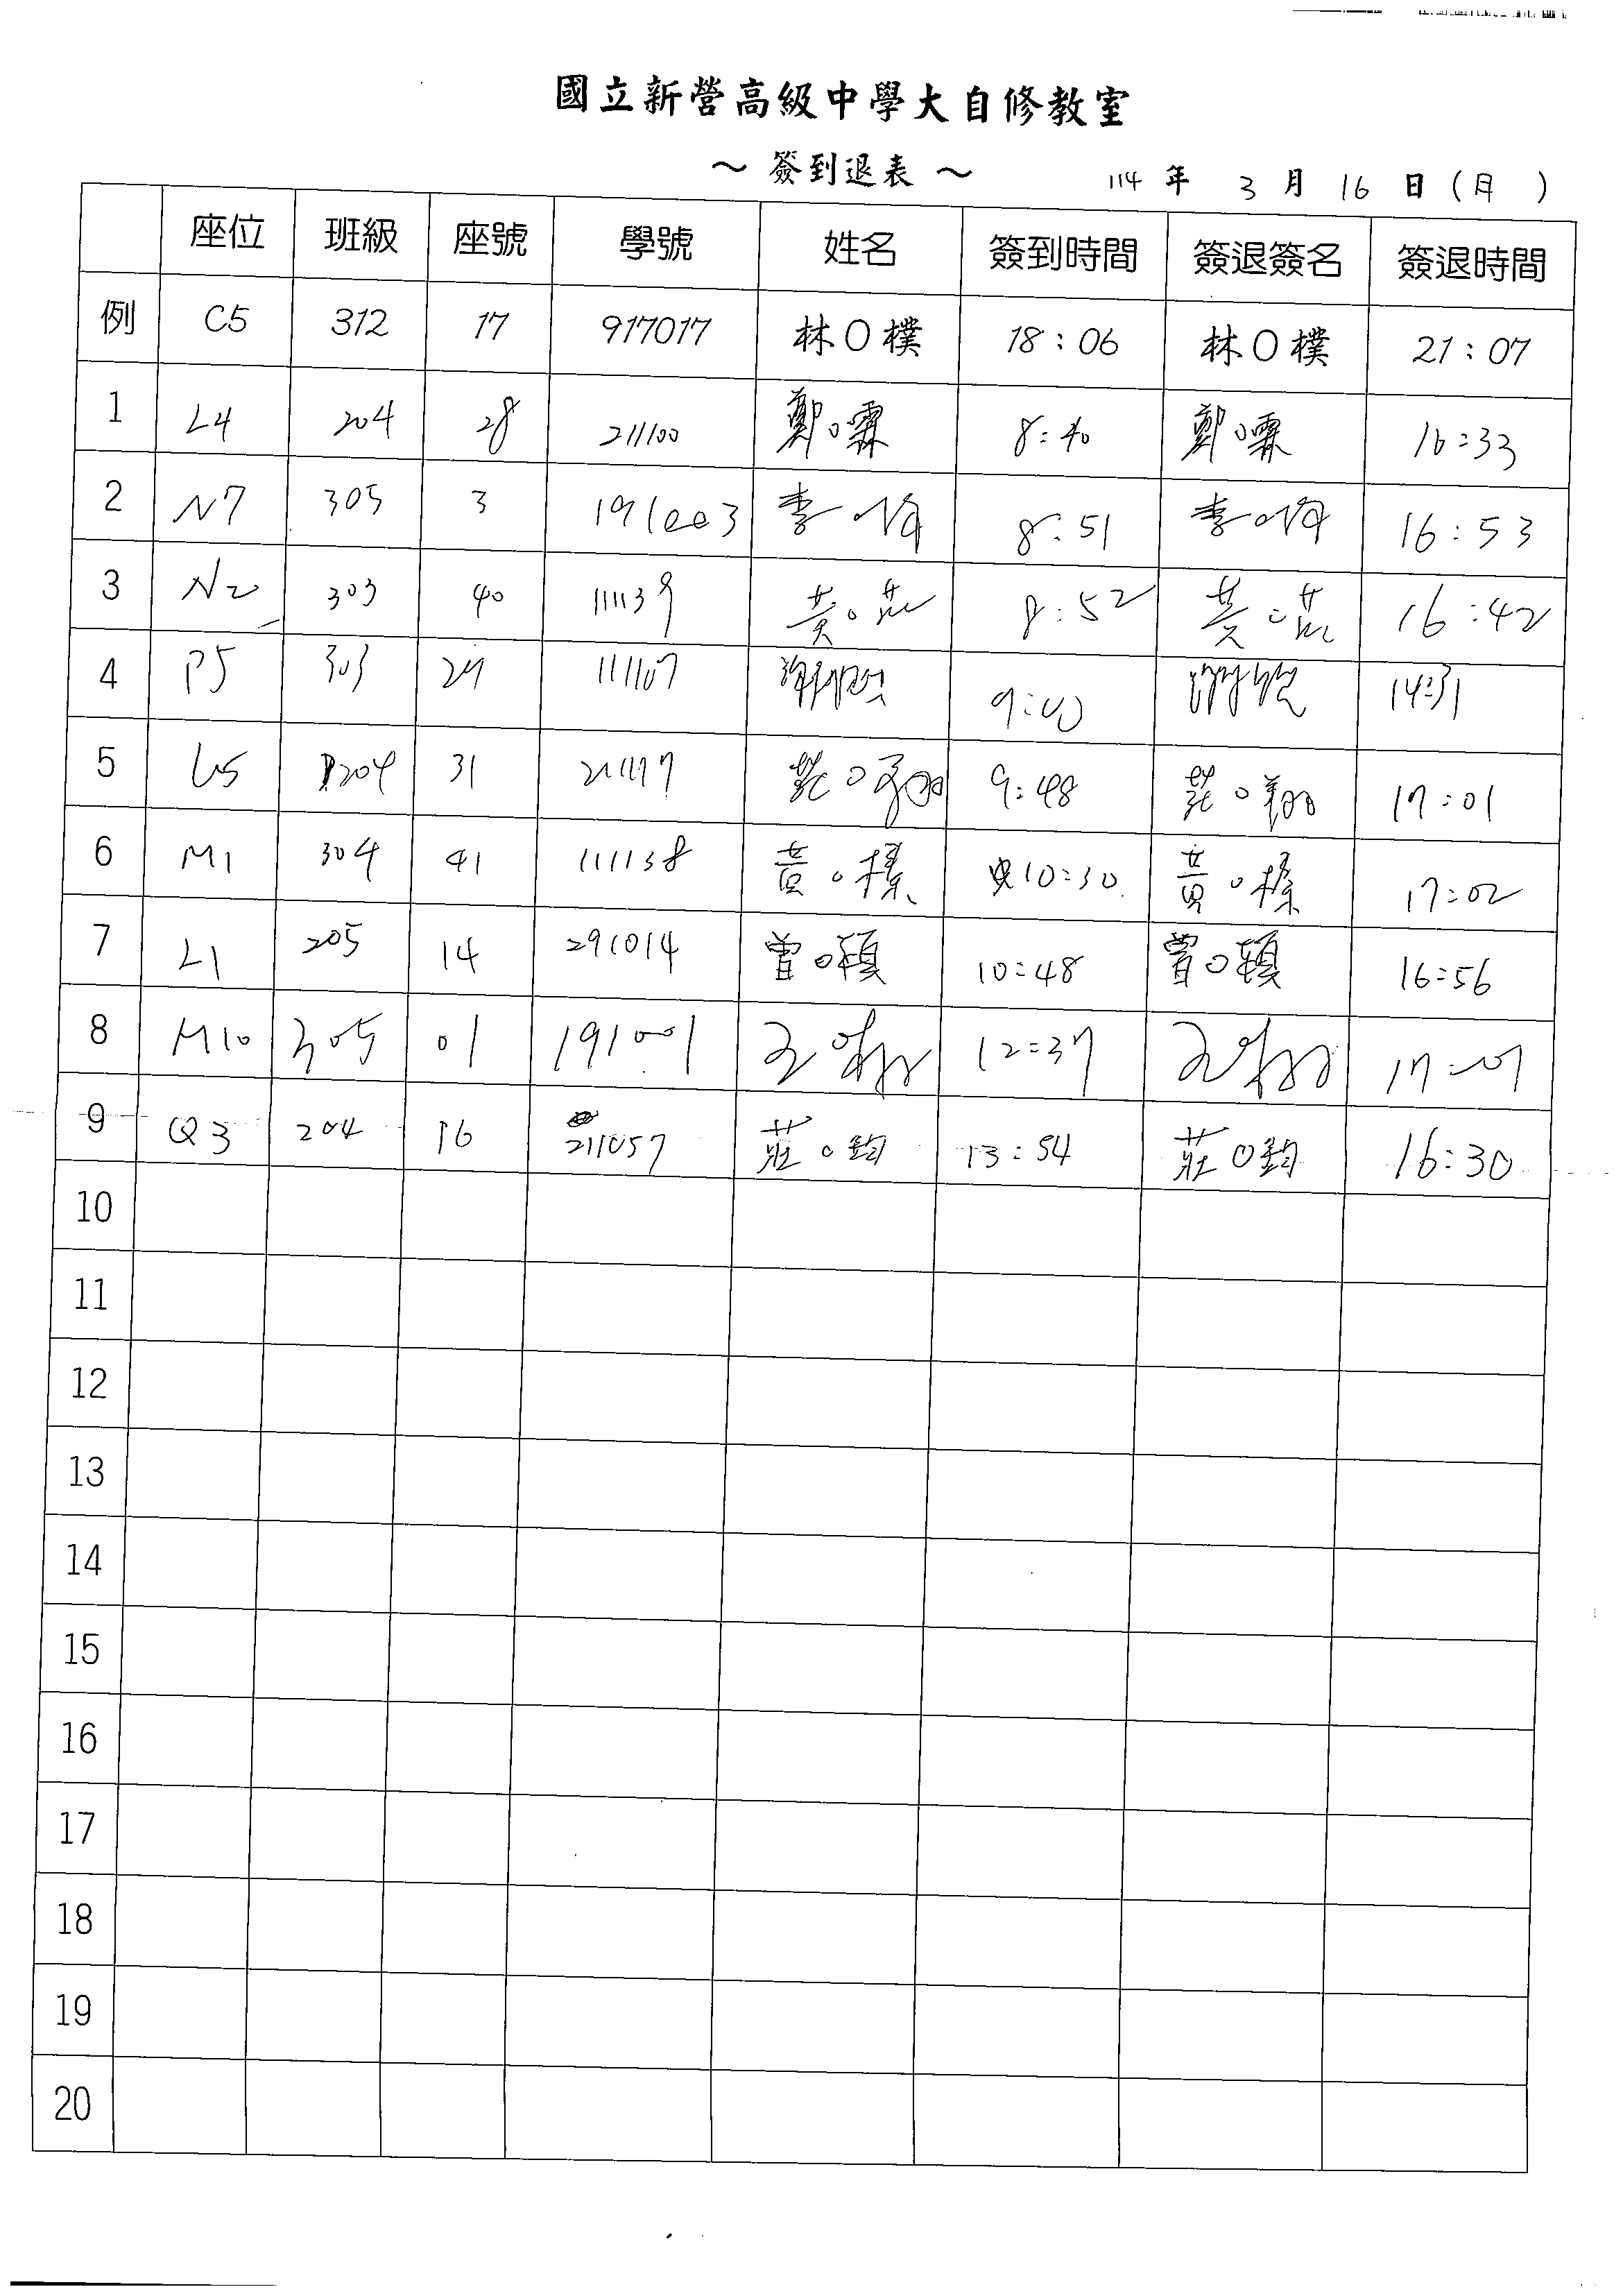 國立新營高級中學大自修教室
～ 簽到退表 ～ 114 年 3 月 16 日 (日 )
座位 班級 座號 學號 姓名 簽到時間 簽退簽名 簽退時間
例 C5 312 17 917017 林O樸 18:06 林O樸 21:07
1 L4 204 28 211100 鄭O霖 8:40 鄭O霖 16:33
2 N7 305 3 191003 李O 8:51 李O 16:53
3 N2 303 40 111139 黃O 8:52 黃O 16:42
4 P5 303 29 111107 謝 9:00 謝 14:31
5 L5 204 31 211117 莊O翔 9:48 莊O翔 17:01
6 M1 304 41 111138 黃O榛 10:30 黃O榛 17:02
7 L1 205 14 291014 曾O穎 10:48 曾O穎 16:56
8 M10 305 01 191001 王O 12:37 王O 17:01
9 Q3 204 16 211057 莊O鈞 13:54 莊O鈞 16:30
10
11
12
13
14
15
16
17
18
19
20